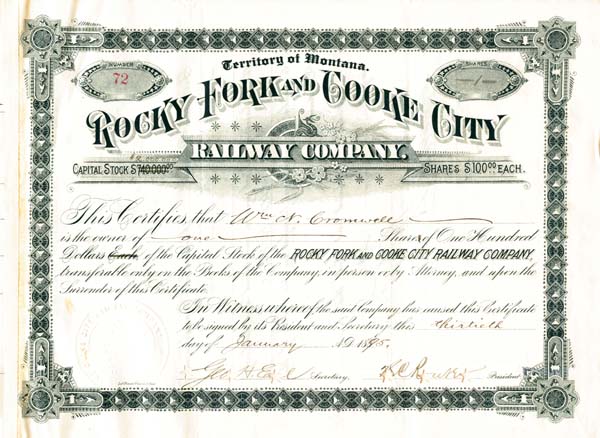 Territory of Montana.
NUMBER
72
SHARES
1
ROCKY FORK AND COOKE CITY
RAILWAY COMPANY.
CAPITAL STOCK $740.000⁰⁰
SHARES $100⁰⁰ EACH.
This Certifies, that Wm N. Cromwell
is the owner of one Shares of One Hundred
Dollars Each, of the Capital Stock of the ROCKY FORK AND COOKE CITY RAILWAY COMPANY,
transferable only on the Books of the Company, in person or by Attorney, and upon the
Surrender of this Certificate.
In Witness whereof the said Company has caused this Certificate
to be signed by its President and Secretary this thirtieth
day of January AD 1895.
Geo H Secretary.
President